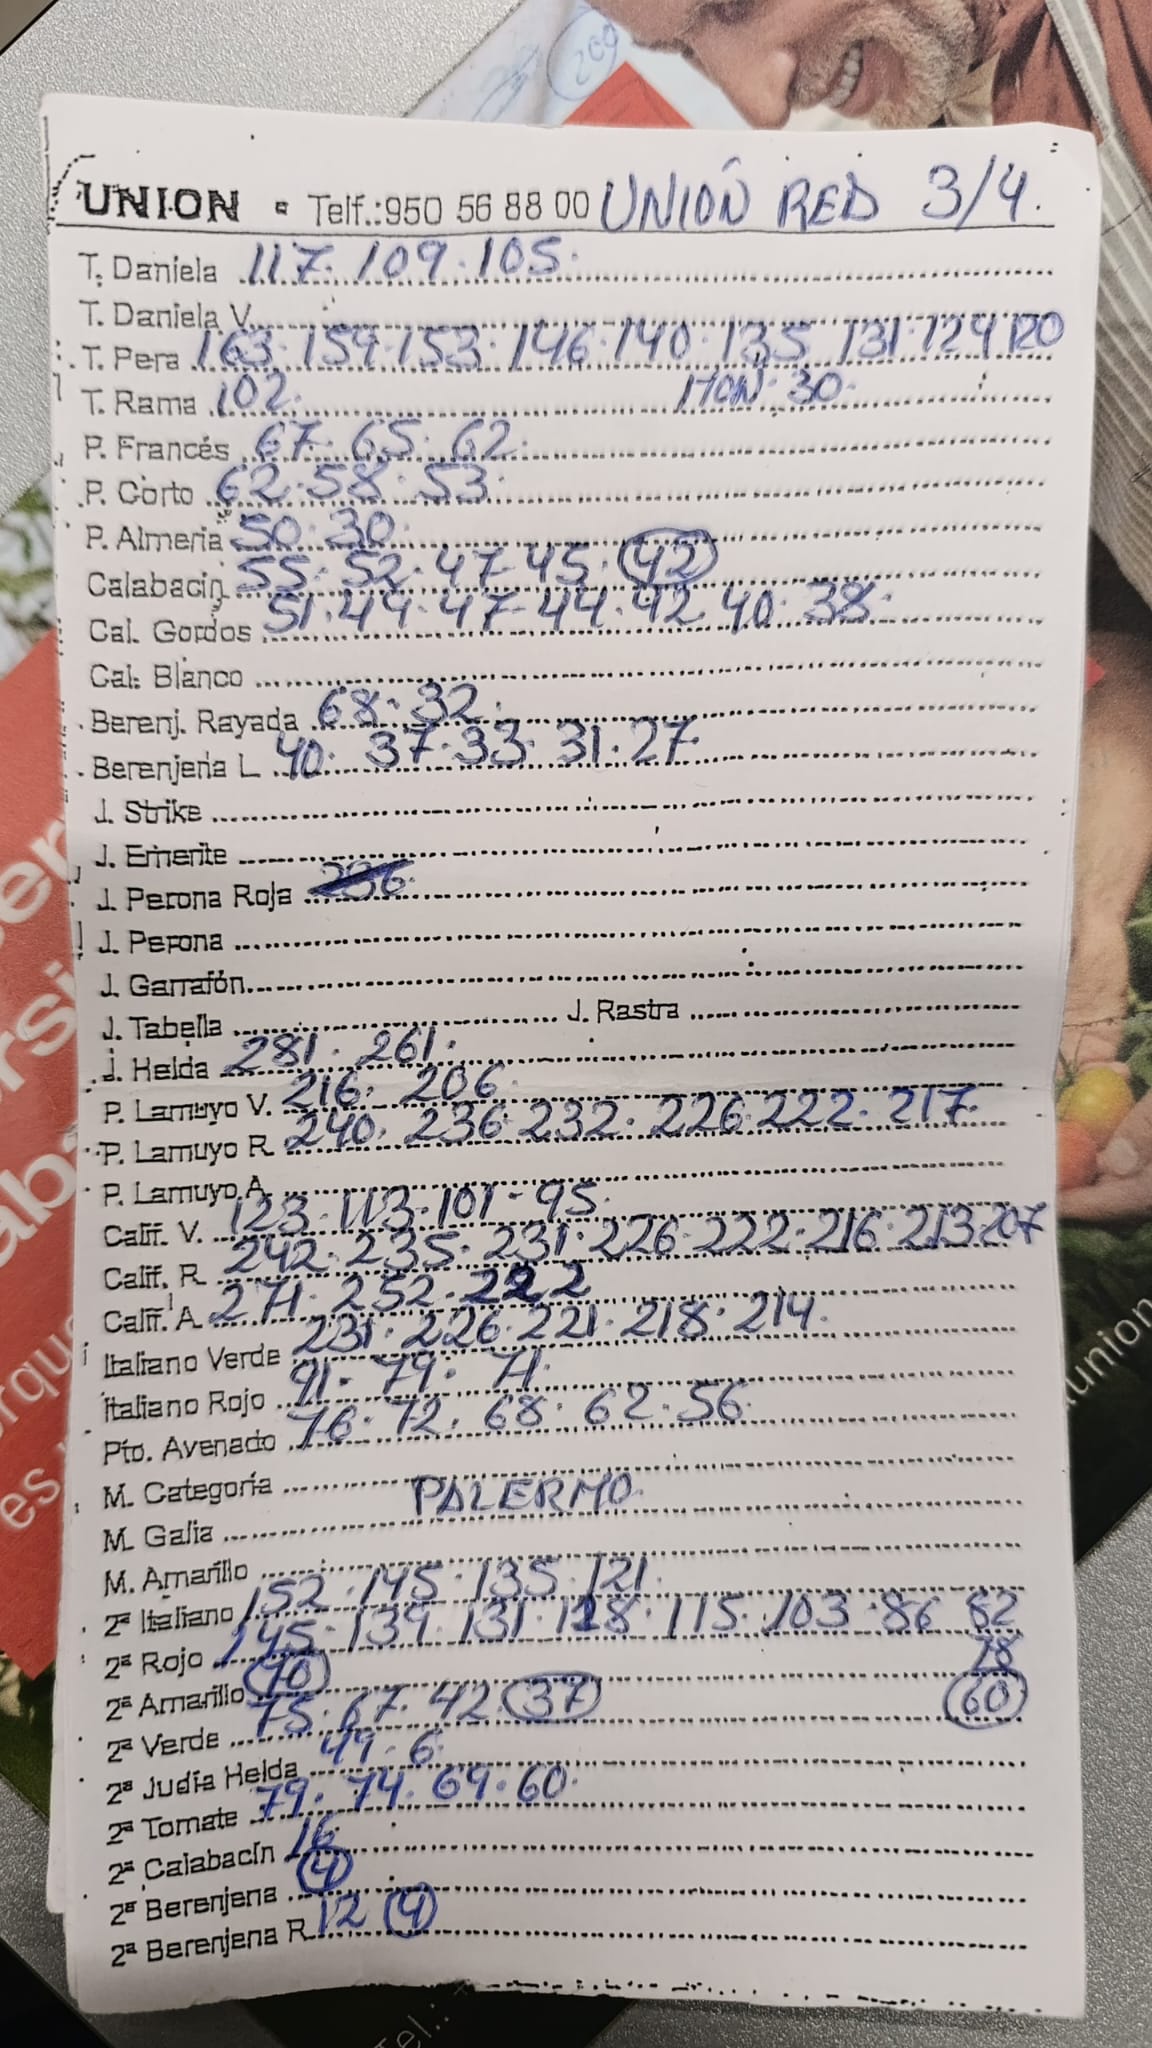 209
UNION - Telf.:950 56 88 00 UNIÓN RED 3/4.
T. Daniela 117. 109. 105.
T. Daniela V.
T. Pera 163. 159. 153. 146. 140. 135 131. 124 120
T. Rama 102. MON. 30.
P. Francés 67. 65. 62.
P. Corto 62. 58. 53.
P. Almeria 50. 30.
Calabacín 55. 52. 47. 45. 42
Cal. Gordos 51. 49. 47. 44. 42. 40. 38.
Cal. Blanco
Berenj. Rayada 68. 32.
Berenjena L 40. 37. 33. 31. 27.
J. Strike
J. Emerite
J. Perona Roja 236.
J. Perona
J. Garrafón
J. Tabella J. Rastra
J. Helda 281. 261.
P. Lamuyo V. 216. 206.
P. Lamuyo R 240. 236. 232. 226. 222. 217.
P. Lamuyo A
Calif. V. 123. 113. 101. 95.
Calif. R 242. 235. 231. 226. 222. 216. 213 207
Calif. A 271. 252. 222
Italiano Verde 231. 226. 221. 218. 214.
Italiano Rojo 91. 79. 71.
Pto. Avenado 76. 72. 68. 62. 56.
M. Categoría PALERMO.
M. Galia
M. Amarillo
2ª Italiano 152. 145. 135. 121.
2ª Rojo 145. 139. 131. 128. 115. 103. 86 82 78 60
2ª Amarillo
2ª Verde 75. 67. 42. 37
2ª Judía Helda 49. 6.
2ª Tomate 79. 74. 69. 60.
2ª Calabacín 16
2ª Berenjena 4
2ª Berenjena R 12 4
union
es